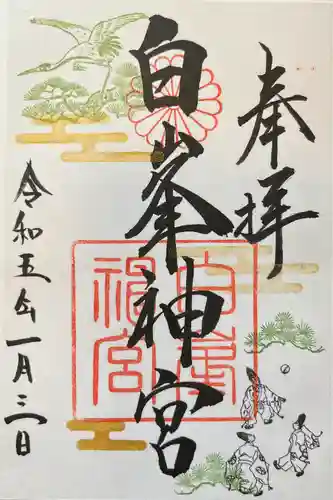 奉拝
白峯神宮
白峯
神宮
令和五年一月三日